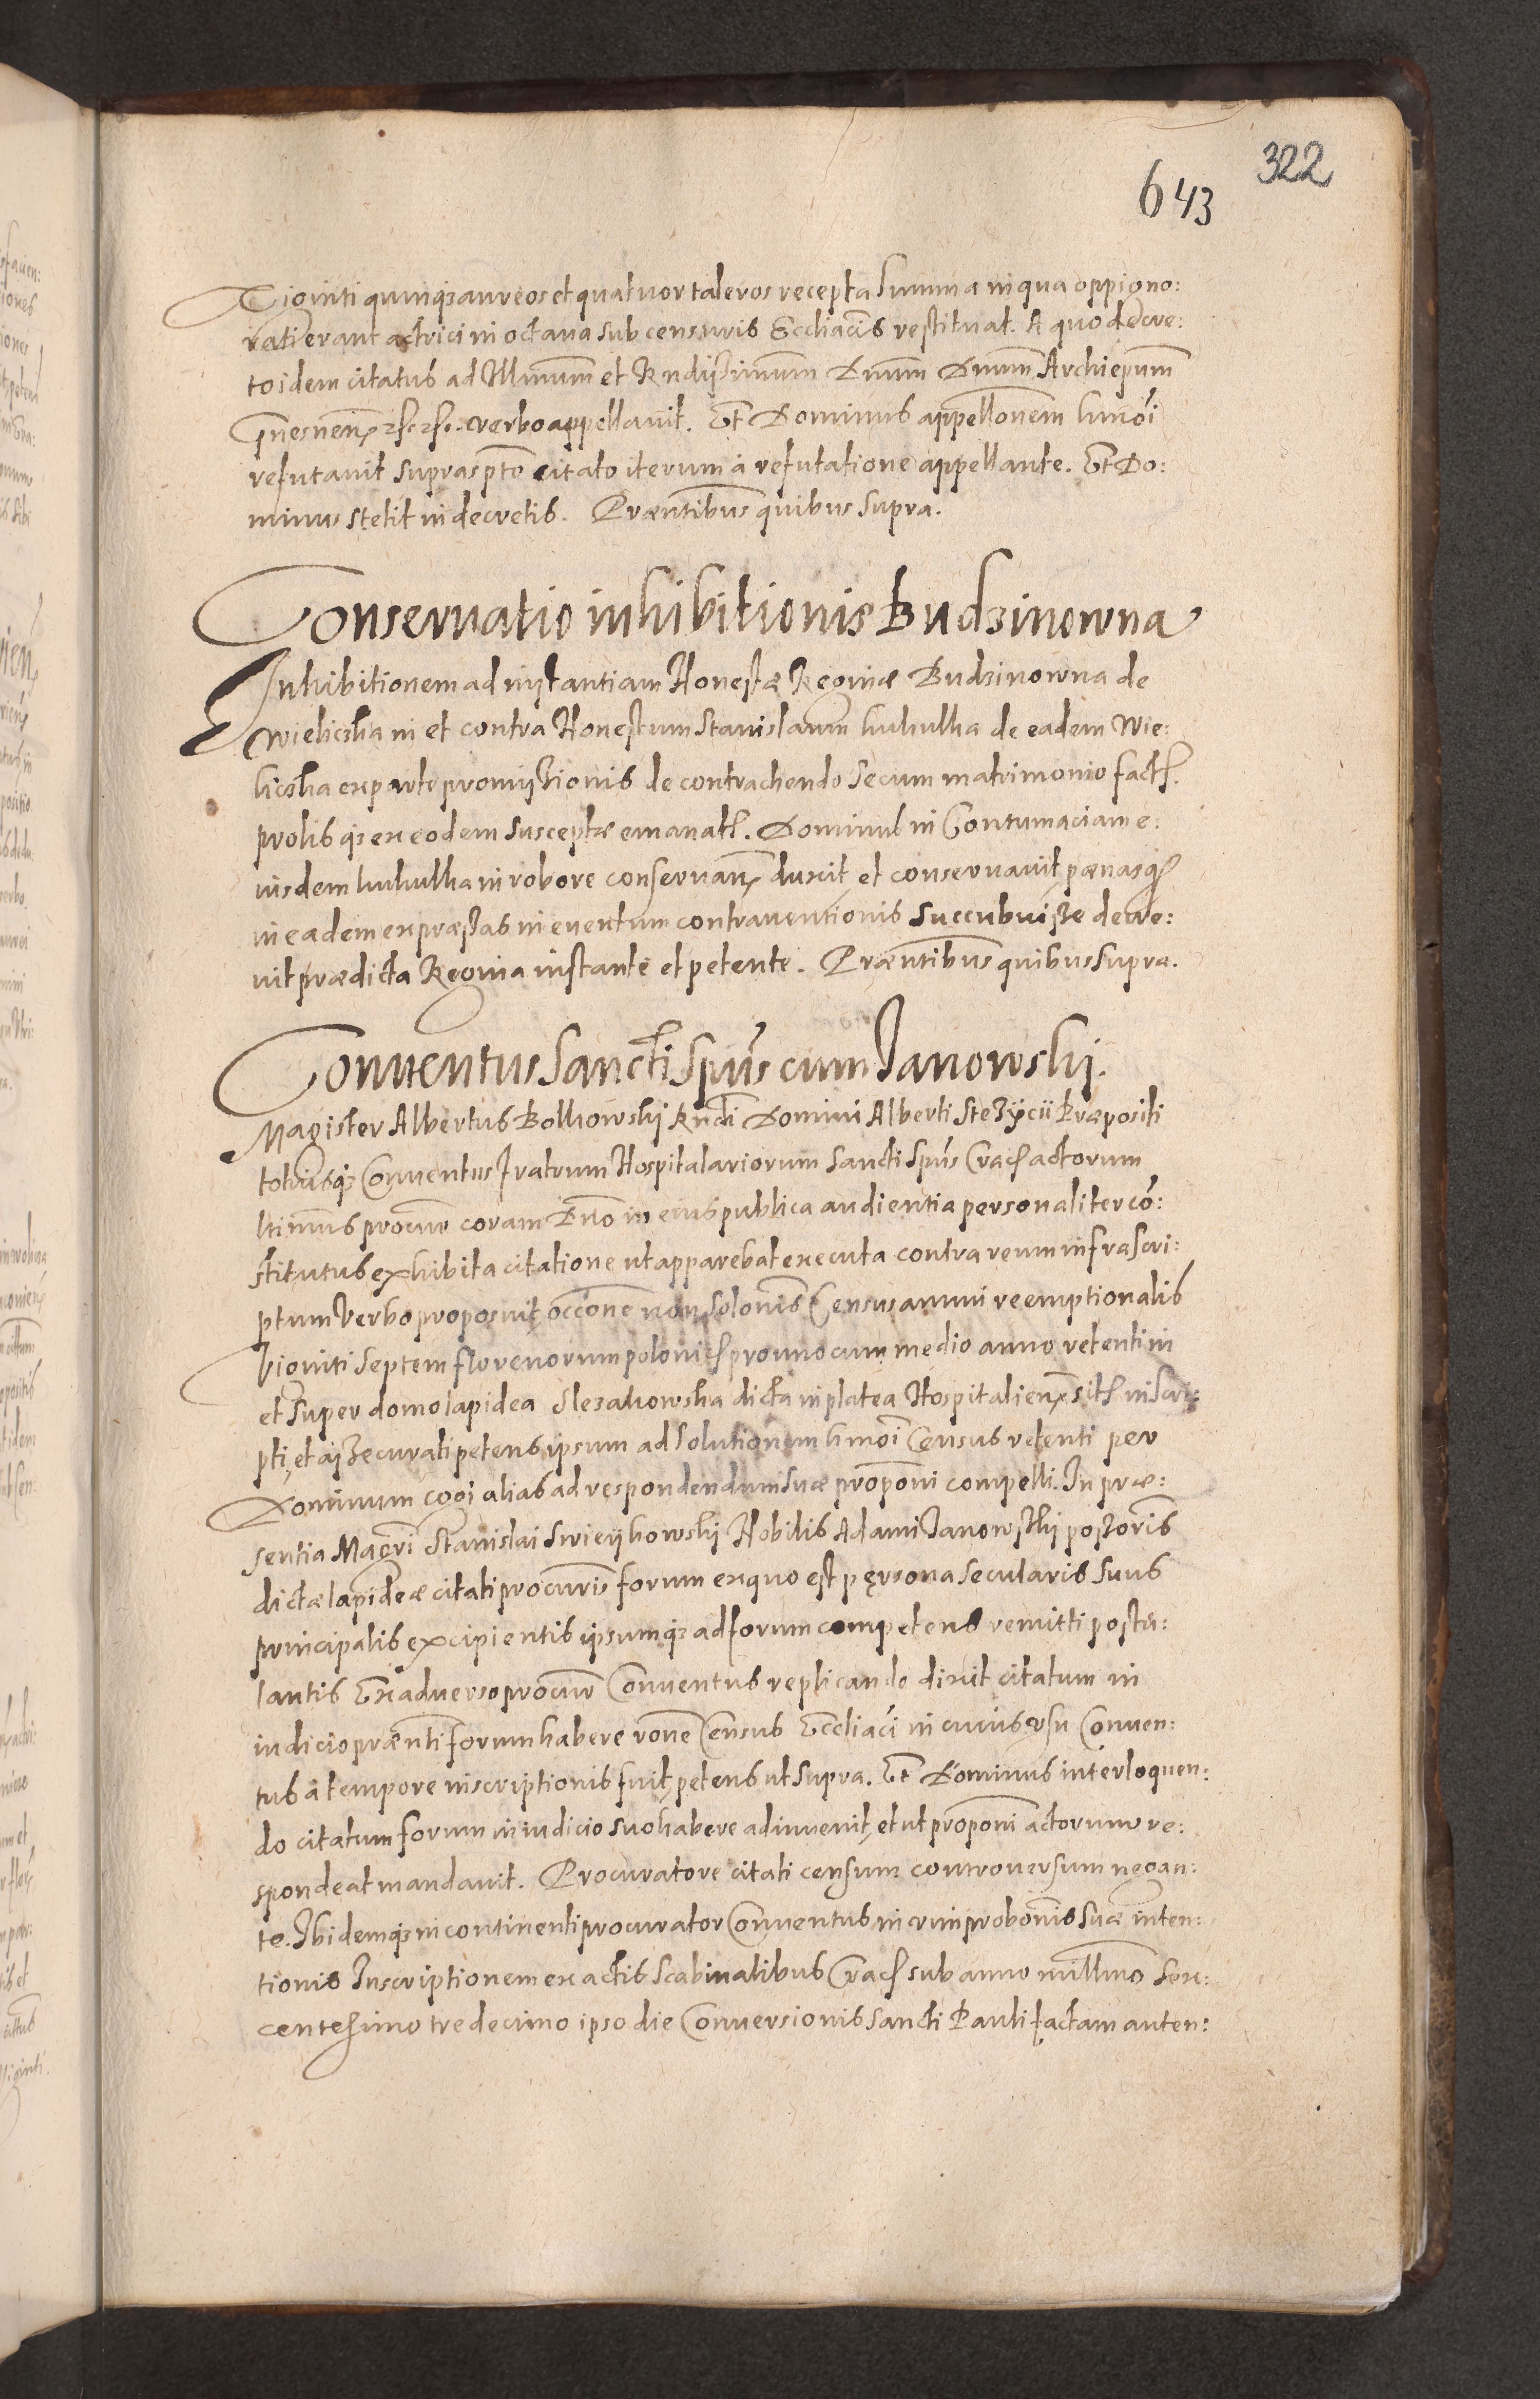 322
643
Viginti quinq; aureos et quatuor taleros recepta summa in qua oppigno:
rati erant actrici in octava sub censuris Eccliacis restituat. A quo decre:
to idem citatus ad Illmum et Rndissimum Dnum Dnum Archiepum
Gnesnen verbo appellavit. Et Dominus appellonem hmoi
refutavit suprascpto citato iterum à refutatione appellante. Et Do:
minus stetit in decretis. Praentibus quibus supra.
Conservatio inhibitionis Budzinowna
Inhibitionem ad instantiam Honestæ Reginæ Budzinowna de
Wieliczka in et contra Honestum Stanislaum kukulka de eadem Wie:
liczka ex parte promissionis de contrachendo secum matrimonio fact.
prolis q; ex eodem susceptæ emanat. Dominus in Contumaciam e:
iusdem kukulka in robore conservan duxit et conservavit pænasq;
in eadem expræssas in eventum contraventionis succubuisse decre:
vit prædicta Regina instante et petente. Praentibus quibus supra.
Conventus Sancti Spus cum Janowski.
Magister Albertus Bolkowskj Rndi Domini Alberti Stezycii Præpositi
totiusq; Conventus Fratrum Hospitalariorum Sancti Spus Crac actorum
ltimus procur coram Dno in eius publica audientia personaliter co:
stitutus exhibita citatione ut apparebat executa contra reum infrascri:
ptum verbo proposuit occone non solonis Census annui reemptionalis
Viginti septem florenorum polonic pro uno cum medio anno retenti in
et super domo lapidea Slezakowska dicta in platea Hospitalien sit inscri:
pti, et assecurati petens ipsum ad solutionem hmoi Census retenti per
Dominum cogi alias ad respondendum suæ proponi compelli. In præ:
sentia Magri Stanislai Swieykowskj Nobilis Adami Janowskj possoris
dictæ lapideæ citati procuris forum ex quo est persona secularis suus
principalis excipientis ipsumq; ad forum competens remitti postu:
lantis Ex adverso procur Conventus replicando dixit citatum in
iudicio præenti forum habere rone Census Eccliaci in cuius usu Conven:
tus à tempore inscriptionis fuit, petens ut supra. Et Dominus interloquen:
do citatum forum in iudicio suo habere adinvenit, et ut proponi actorum re:
spondeat mandavit. Procuratore citati censum controversum negan:
te. Ibidemq; in continenti procurator Conventus in vim probonis suæ inten:
tionis Inscriptionem ex actis Scabinalibus Crac sub anno millmo sex:
centesimo tredecimo ipso die Conversionis Sancti Pauli factam auten: